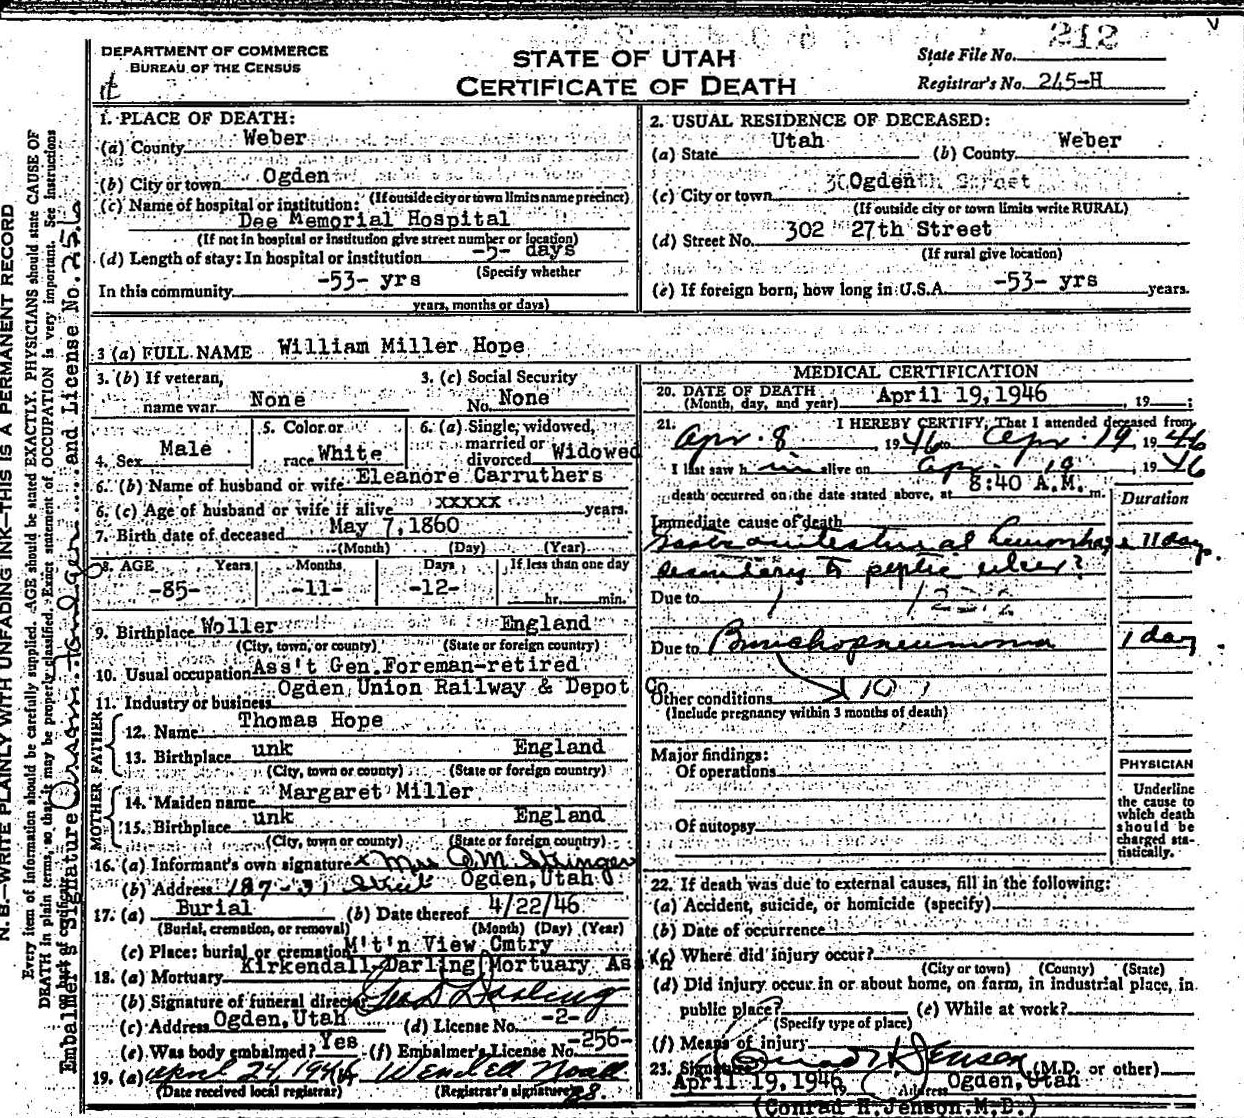 212
DEPARTMENT OF COMMERCE
BUREAU OF THE CENSUS
STATE OF UTAH
CERTIFICATE OF DEATH
State File No.
Registrar's No. 245-H
1. PLACE OF DEATH:
(a) County Weber
(b) City or town Ogden
(If outside city or town limits name precinct)
(c) Name of hospital or institution:
Dee Memorial Hospital
(If not in hospital or institution give street number or location)
(d) Length of stay: In hospital or institution -5- days
(Specify whether
In this community -53- yrs
years, months or days)
2. USUAL RESIDENCE OF DECEASED:
(a) State Utah (b) County Weber
(c) City or town Ogden
(If outside city or town limits write RURAL)
(d) Street No. 302 27th Street
(If rural give location)
(e) If foreign born, how long in U.S.A. -53- yrs years.
3 (a) FULL NAME William Miller Hope
3. (b) If veteran,
name war None
3. (c) Social Security
No. None
4. Sex Male
5. Color or
race White
6. (a) Single, widowed,
married or
divorced Widowed
6. (b) Name of husband or wife Eleanore Carruthers
6. (c) Age of husband or wife if alive xxxxx years.
7. Birth date of deceased May 7, 1860
(Month) (Day) (Year)
8. AGE Years Months Days If less than one day
-85- -11- -12- hr. min.
9. Birthplace Woller England
(City, town, or county) (State or foreign country)
10. Usual occupation Ass't Gen. Foreman-retired
11. Industry or business Ogden Union Railway & Depot Co
FATHER
12. Name Thomas Hope
13. Birthplace unk England
(City, town or county) (State or foreign country)
MOTHER
14. Maiden name Margaret Miller
15. Birthplace unk England
(City, town or county) (State or foreign country)
16. (a) Informant's own signature x Mrs O.M. Stringer
(b) Address 187-31 Street Ogden, Utah
17. (a) Burial (b) Date thereof 4/22/46
(Burial, cremation, or removal) (Month) (Day) (Year)
(c) Place: burial or cremation M't'n View Cmtry
18. (a) Mortuary Kirkendall-Darling Mortuary As
(b) Signature of funeral director Geo D Darling
(c) Address Ogden, Utah (d) License No. -2-
(e) Was body embalmed? Yes (f) Embalmer's License No. -256-
19. (a) April 24, 1946 Wendell Noall
(Date received local registrar) (Registrar's signature)
MEDICAL CERTIFICATION
20. DATE OF DEATH April 19, 1946 , 19 ;
(Month, day, and year)
21. I HEREBY CERTIFY, That I attended deceased from
Apr. 8 1946 to Apr. 19, 1946
I last saw him alive on Apr. 19 , 1946
death occurred on the date stated above, at 8:40 A.M. m.
Duration
Immediate cause of death
Gastrointestinal hemorrhage 11 days.
secondary to peptic ulcer?
Due to
Due to Bronchopneumonia 1 day
Other conditions 107
(Include pregnancy within 3 months of death)
Major findings:
Of operations
Of autopsy
PHYSICIAN
Underline
the cause to
which death
should be
charged sta-
tistically.
22. If death was due to external causes, fill in the following:
(a) Accident, suicide, or homicide (specify)
(b) Date of occurrence
(c) Where did injury occur?
(City or town) (County) (State)
(d) Did injury occur in or about home, on farm, in industrial place, in
public place? (e) While at work?
(Specify type of place)
(f) Means of injury
23. Signature Conrad H Jenson (M.D. or other)
April 19, 1946 Address Ogden, Utah
(Conrad H. Jenson, M.D.)
N. B.—WRITE PLAINLY WITH UNFADING INK—THIS IS A PERMANENT RECORD
Every item of information should be carefully supplied. AGE should be stated EXACTLY. PHYSICIANS should state CAUSE OF
DEATH in plain terms, so that it may be properly classified. Exact statement of OCCUPATION is very important. See instructions
Embalmer's Signature and License No. 256